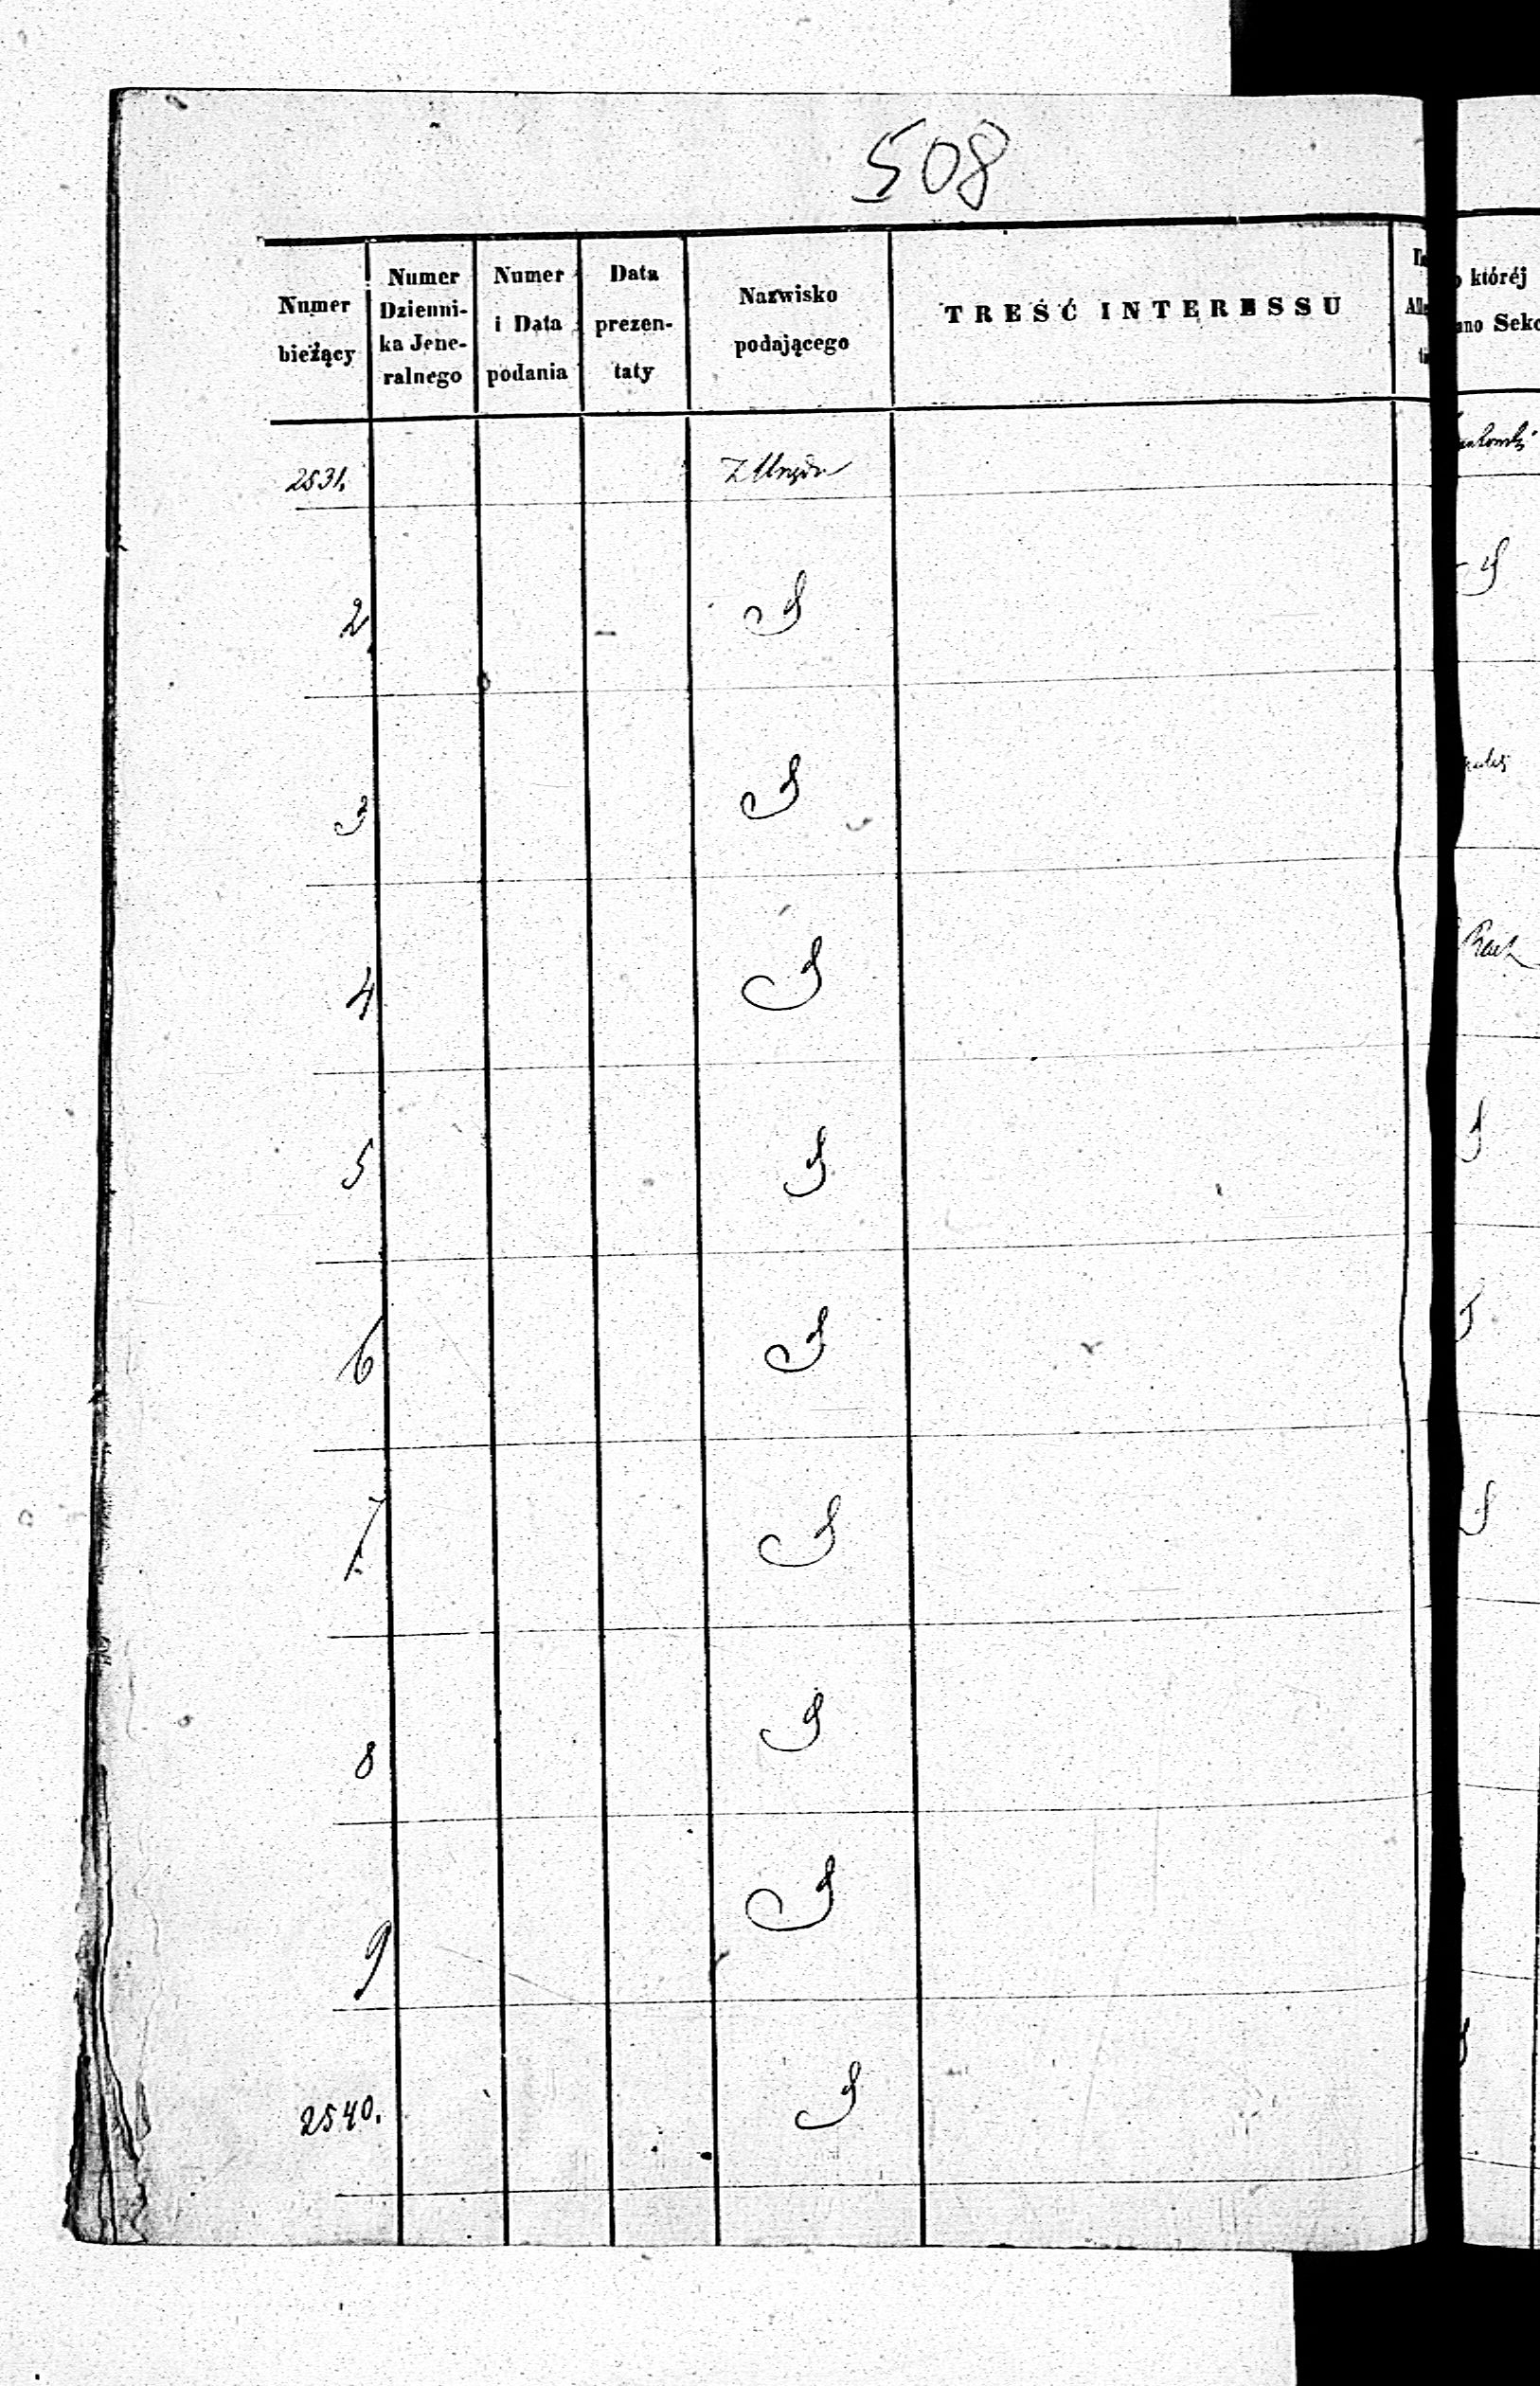 508
Numer bieżący
Numer Dzienni- ka Jene- ralnego
Numer i Data podania
Data prezen- taty
Nazwisko podającego
TREŚĆ INTERESSU
któréj
Sekc
2531. Z Urzędu
2
3
4
5
6
7.
8
9
2540.